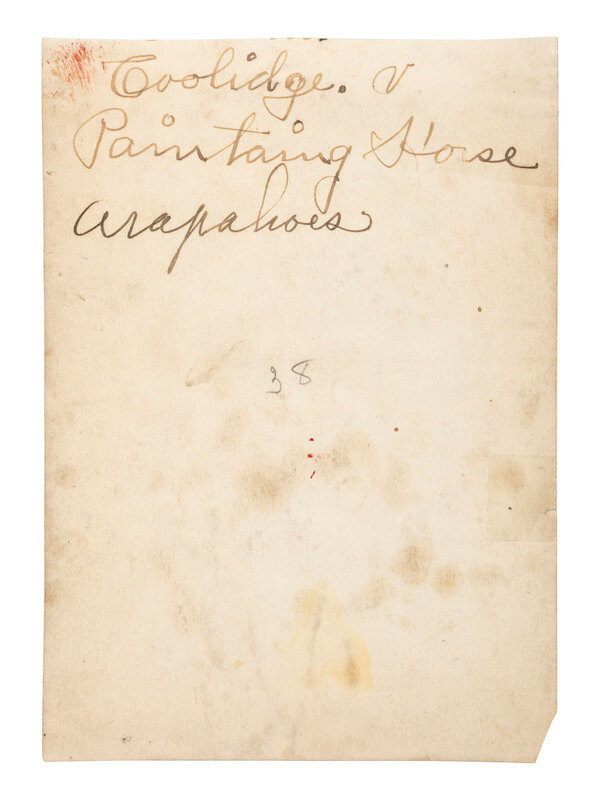 Coolidge. V
Paintaing Horse
Arapahoes
38